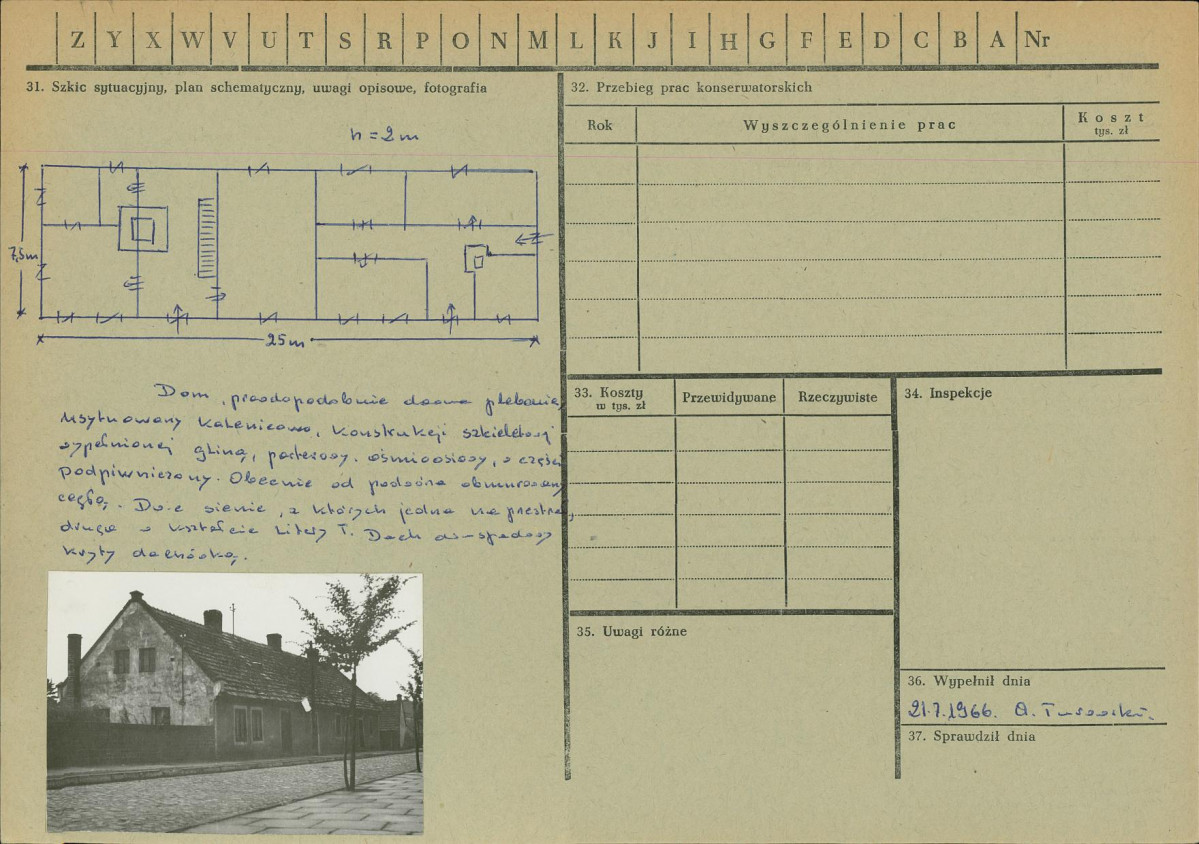 Z Y X W V U T S R P O N M L K J I H G F E D C B A Nr
31. Szkic sytuacyjny, plan schematyczny, uwagi opisowe, fotografia
h = 2 m
7,5m
25 m
Dom, prawdopodobnie dawna plebania,
usytuowany kalenicowo, konstrukcji szkieletowej
wypełnionej gliną, parterowy, ośmioosiowy, w części
podpiwniczony. Obecnie od podwórza obmurowany
cegłą. Dwie sienie, z których jedna na przestrzał,
druga w kształcie litery T. Dach dwuspadowy
kryty dachówką.
32. Przebieg prac konserwatorskich
Rok Wyszczególnienie prac Koszt
tys. zł
33. Koszty
w tys. zł
Przewidywane Rzeczywiste
34. Inspekcje
35. Uwagi różne
36. Wypełnił dnia
21.7.1966. A.
37. Sprawdził dnia